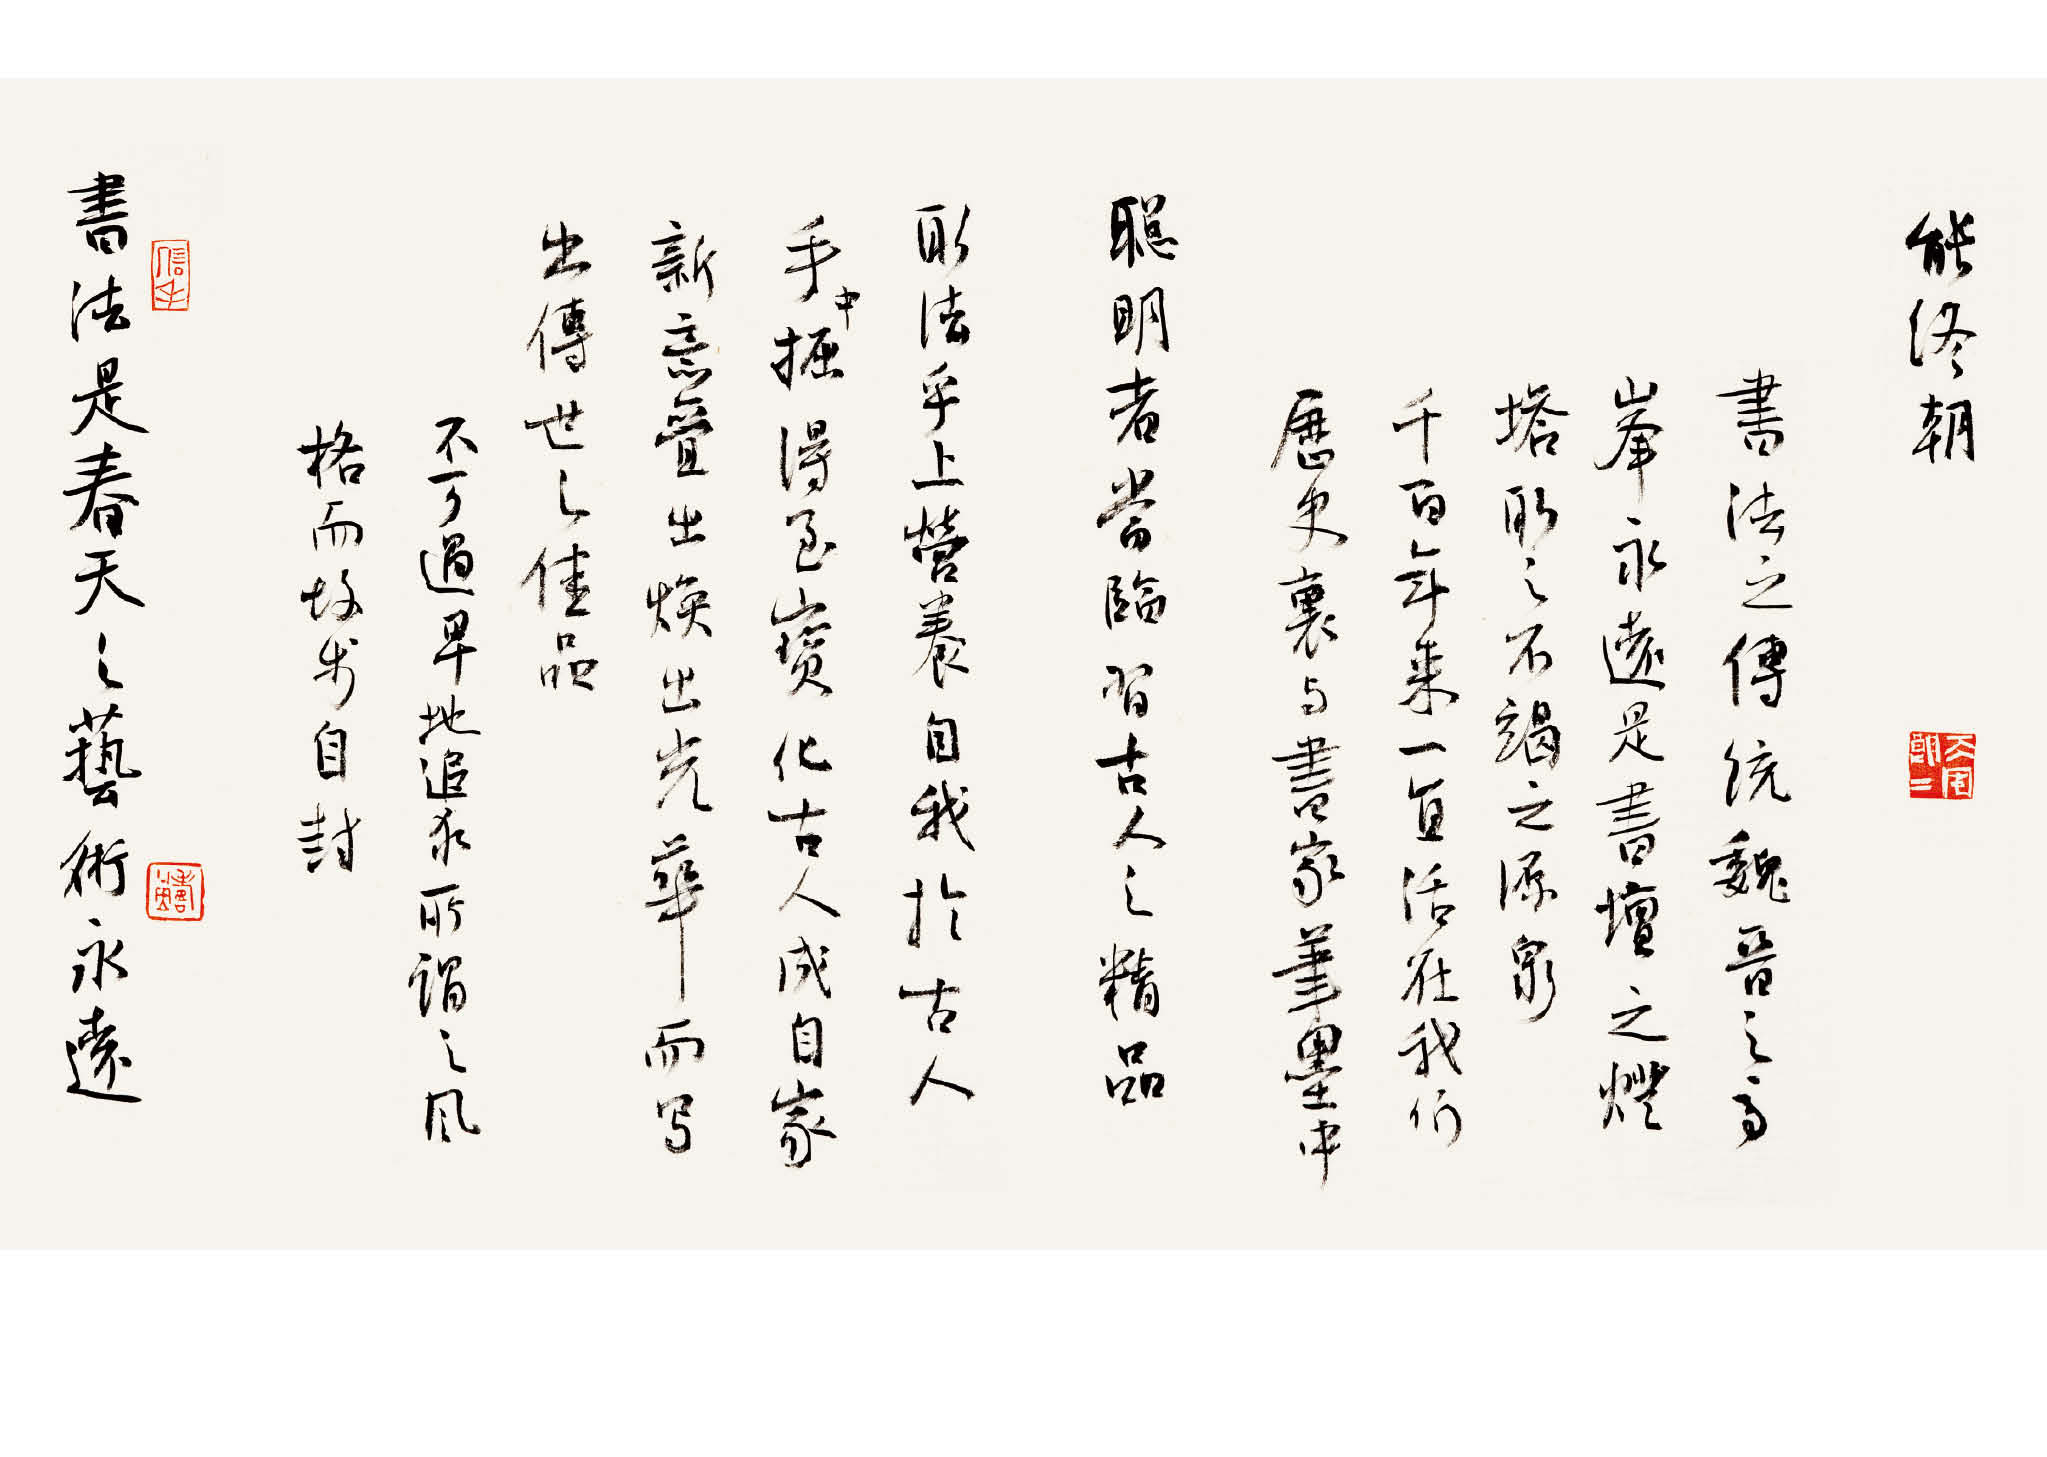 能终朝
書法之傳统魏晉之高
峯永遠是書壇之燈
塔取之不竭之源泉
千百年来一直活在我们
歷史裏与書家筆墨中
聪明者當臨習古人之精品
取法乎上營養自我於古人
手中掘得至寶化古人成自家
新意疊出焕出光華而写
出傳世之佳品
不可過早地追求所謂之風
格而故步自封
書法是春天之藝術永遠